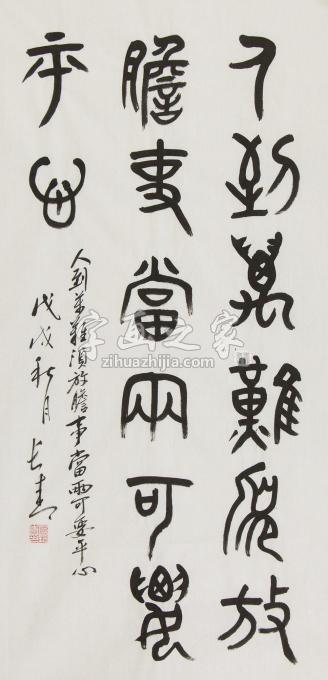 人到萬難須放
膽事當兩可要
平心
人到萬難須放膽事當兩可要平心
戊戌秋月
字画之家
zihuazhijia.com